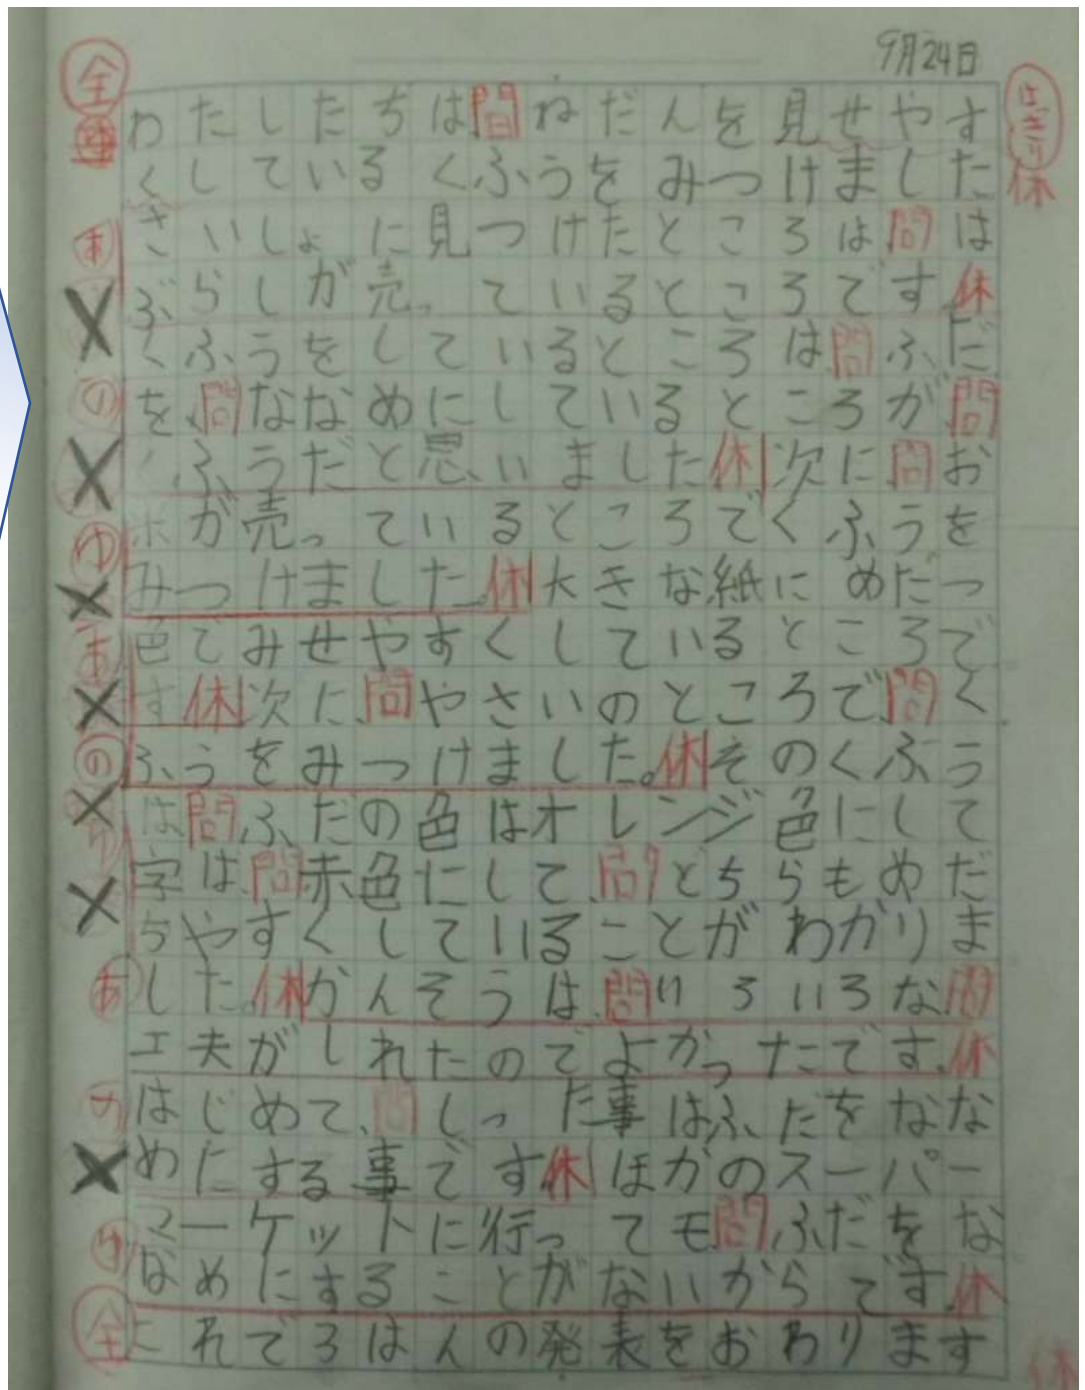 9月24日
はっきり
休
全
わたしたちは間ねだんを見せやす
くしているくふうをみつけました
さいしょに見つけたところは間は
ぶらしが売っているところです。休
くふうをしているところは間ふだ
を、間ななめにしているところが間
ふうだと思いました休次に間お
が売っているところでくふうを
みつけました。休大きな紙にめだつ
色でみせやすくしているところで
す休次に、間やさいのところで間く
ふうをみつけました。休そのくふう
は間ふだの色はオレンジ色にして
字は、間赤色にして、間どちらもめだ
ちやすくしていることがわかりま
した。休かんそうは、間いろいろな間
工夫がしれたのでよかったです。休
はじめて、間しった事はふだをなな
めにする事です休ほかのスーパー
マーケットに行ってモ間ふだをな
なめにすることがないからです。休
これで3はんの発表をおわります
あ
の
ゆ
ま
の
り
あ
の
ゆ
全
休